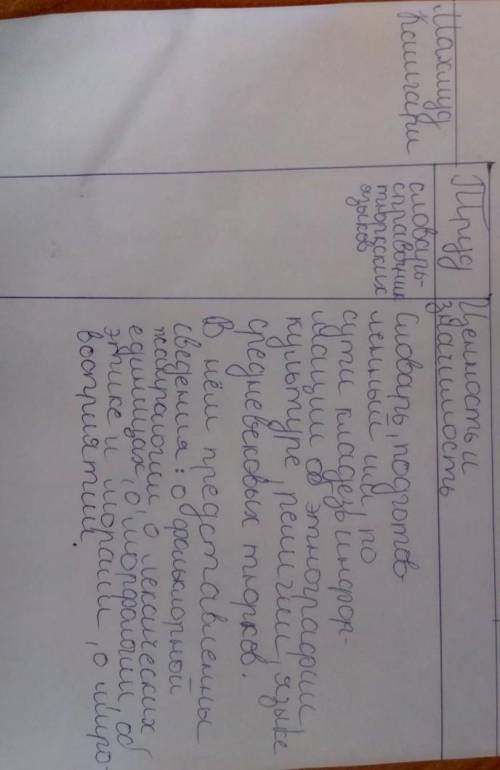 Махмуд
Кашгари
Труд
словарь-
справочник
тюркских
языков
Ценность и
значимость
Словарь, подготов-
ленный им, по
сути кладезь инфор-
мации об этнографии,
культуре, религии, языке
средневековых тюрков.
В нём представленны
сведения: о фольклорной
жанрологии, о лексических
единицах, о морфологии, об
этике и морали, о миро-
восприятии.